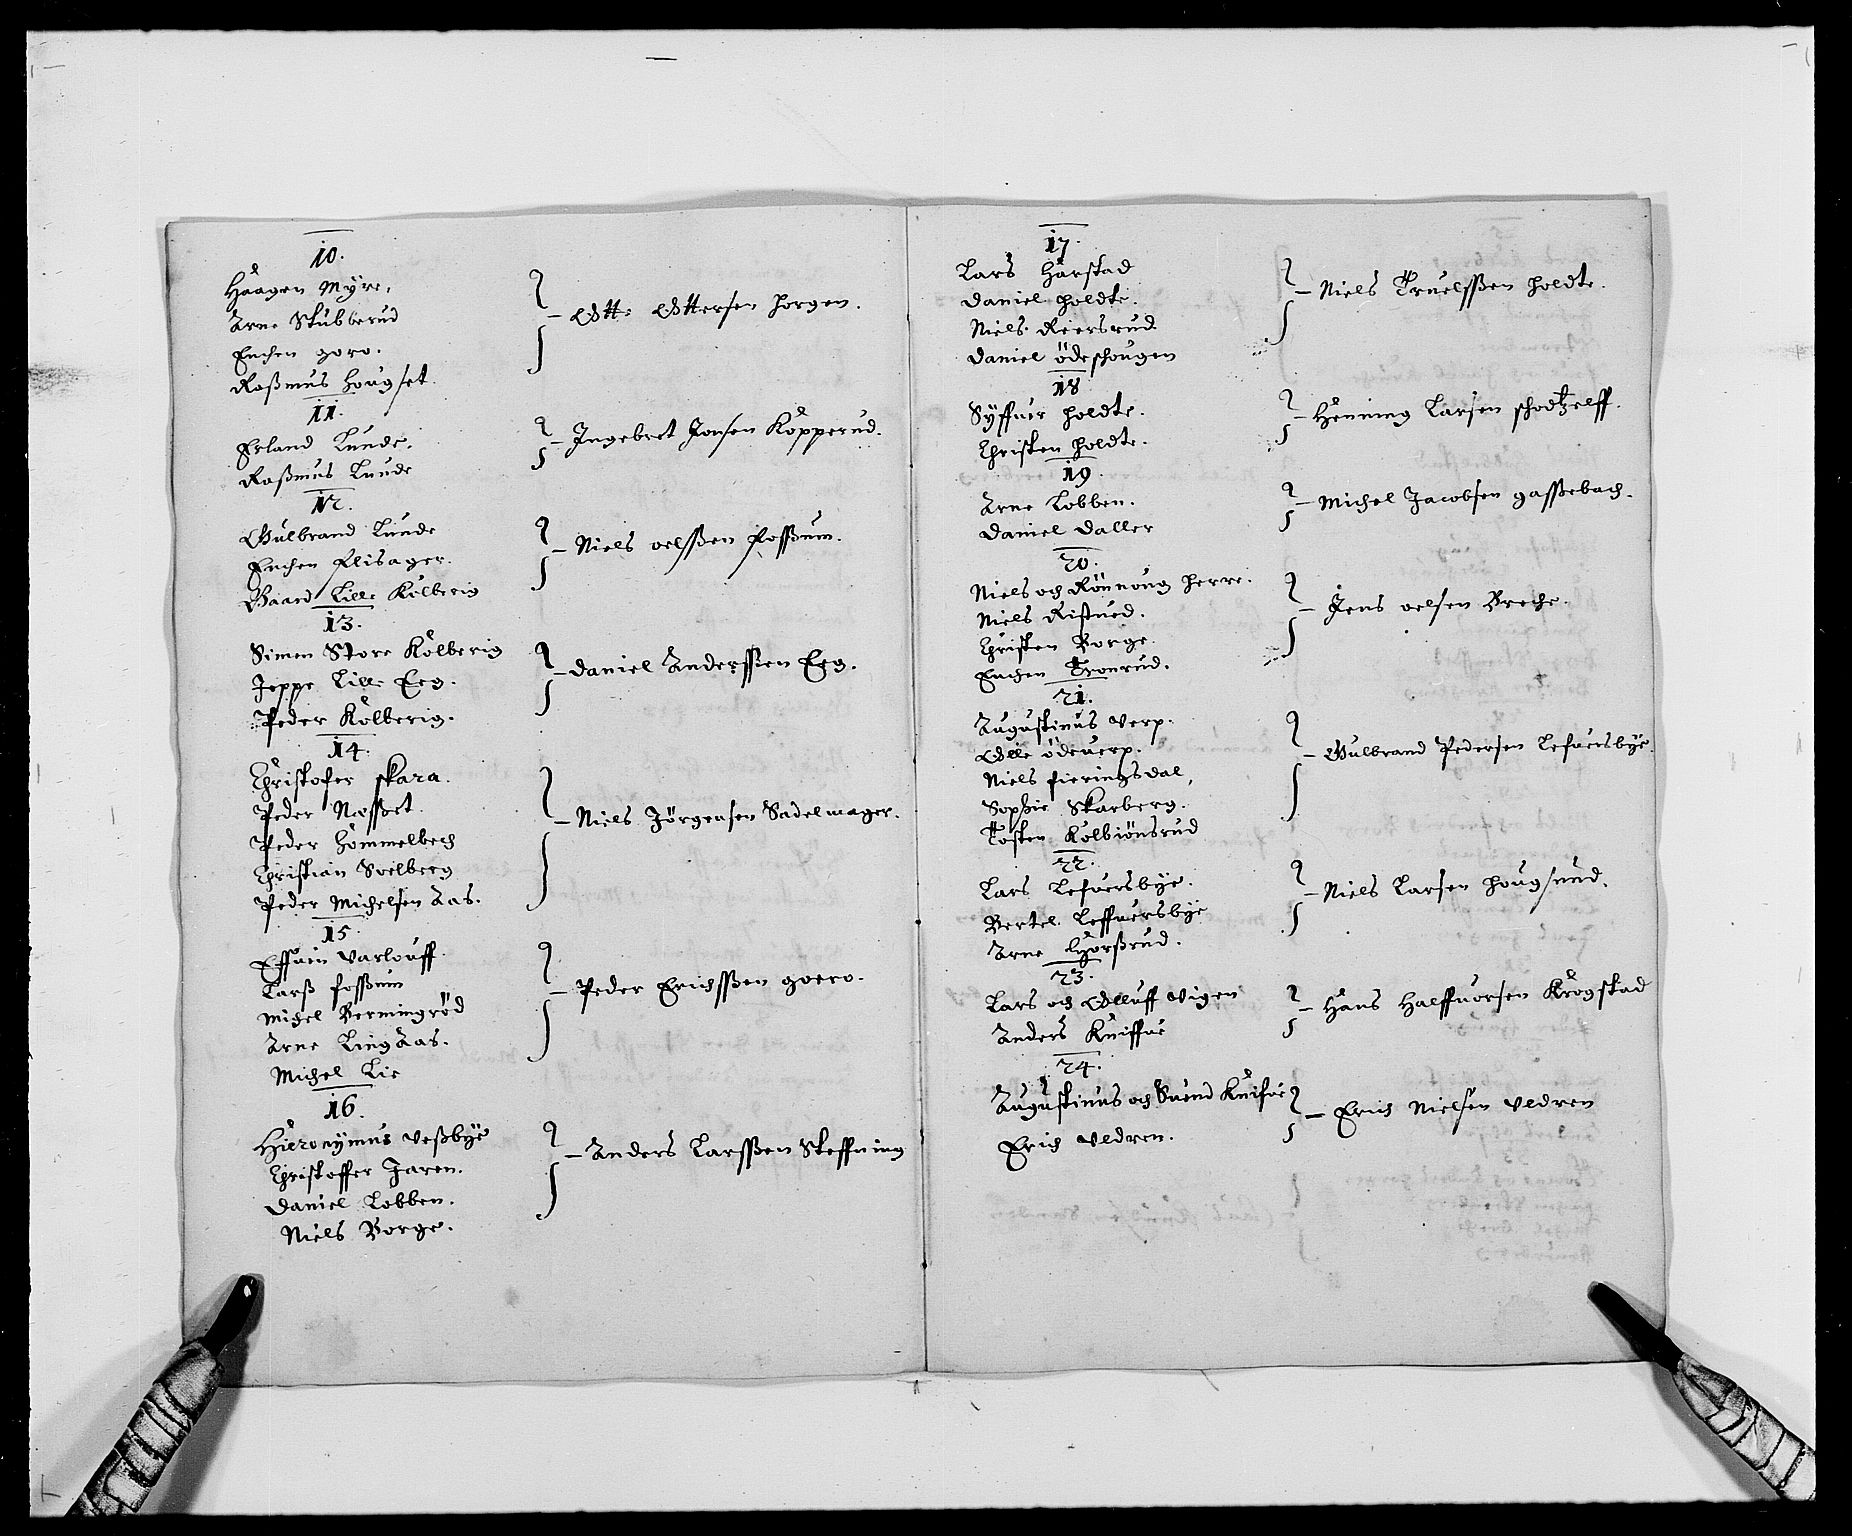 10.
Haagen Myre,
Arne Stubberud
Enchen goro.
Raßmus hougset
Otte Ottersen horgen.
11.
Erland Lunde.
Raßmus Lunde
Ingebret Jonsen Kopperud.
12.
Gulbrand Lunde
Enchen flisager.
Gaard Lille Kolberig
Niels oelsßen foßßum.
13.
Simen Store Kolberig
Jeppe Lille Eeg.
Peder Kolberig.
daniel Andersßen Eeg.
14.
Christofer skara.
Peder Næsset
Peder hommelbech
Christian Soelberg
Peder Michelsen Aas.
Niels Jörgensen Sadelmager.
15.
Effuin Varlouff
Larß foßßum
Michel Bermingröd
Arne Ling Aas.
Michel Lie
Peder Erichsßen goero.
16.
Hieronÿmus Veßbÿe
Christoffer Jaren.
Daniel Lobben.
Niels Borge.
Anders Larsßen Steffning
17.
Lars Harstad
Daniel holdte.
Niels Reiersrud
Daniel ödeschougen
Niels Truelsßen holdte.
18.
Sÿffuer holdte.
Christen holdte.
Henning Larsen schodtzelff.
19.
Arne Lobben.
Daniel Daller
Michel Jacobsen gasßebach.
20.
Niels och Rönnoug herre.
Niels Ristued.
Christen Borge.
Enchen Tronrud.
Jens oelsen Breche.
21.
Augustinus Verp.
Olle ödeuerp.
Niels fieringsdal,
Sophie Skarberg.
Tosten Kolbiönsrud
Gulbrand Pedersen Lefuersbÿe.
22.
Lars Lefuersbÿe.
Bertel Leffuersbÿe
Arne horßrud.
Niels Larsen hougsund.
23.
Lars och Olluff Vigen
Anders Kniffue
Hans Halffuorsen Krogstad
24.
Augustinus och Suend Knifue
Erich Vedren.
Erich Nielsen Vedren